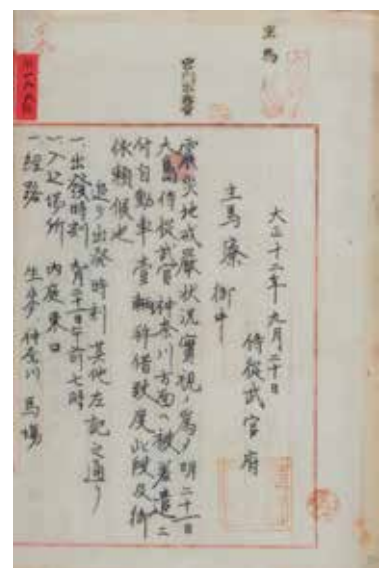 主馬
宮内省
大正十二年九月二十日
侍從武官府
主馬寮 御中
震災地戒嚴状況實視ノ為ノ明二十一日
大島侍從武官神奈川方面ヘ被差遣ニ
付自動車壹輌拝借致度此段及御
依頼候也
追テ出發時刻其他左記之通リ
一、出發時刻 二十一日午前七時
一、入込場所 内庭東口
一、經路 神奈川 馬場